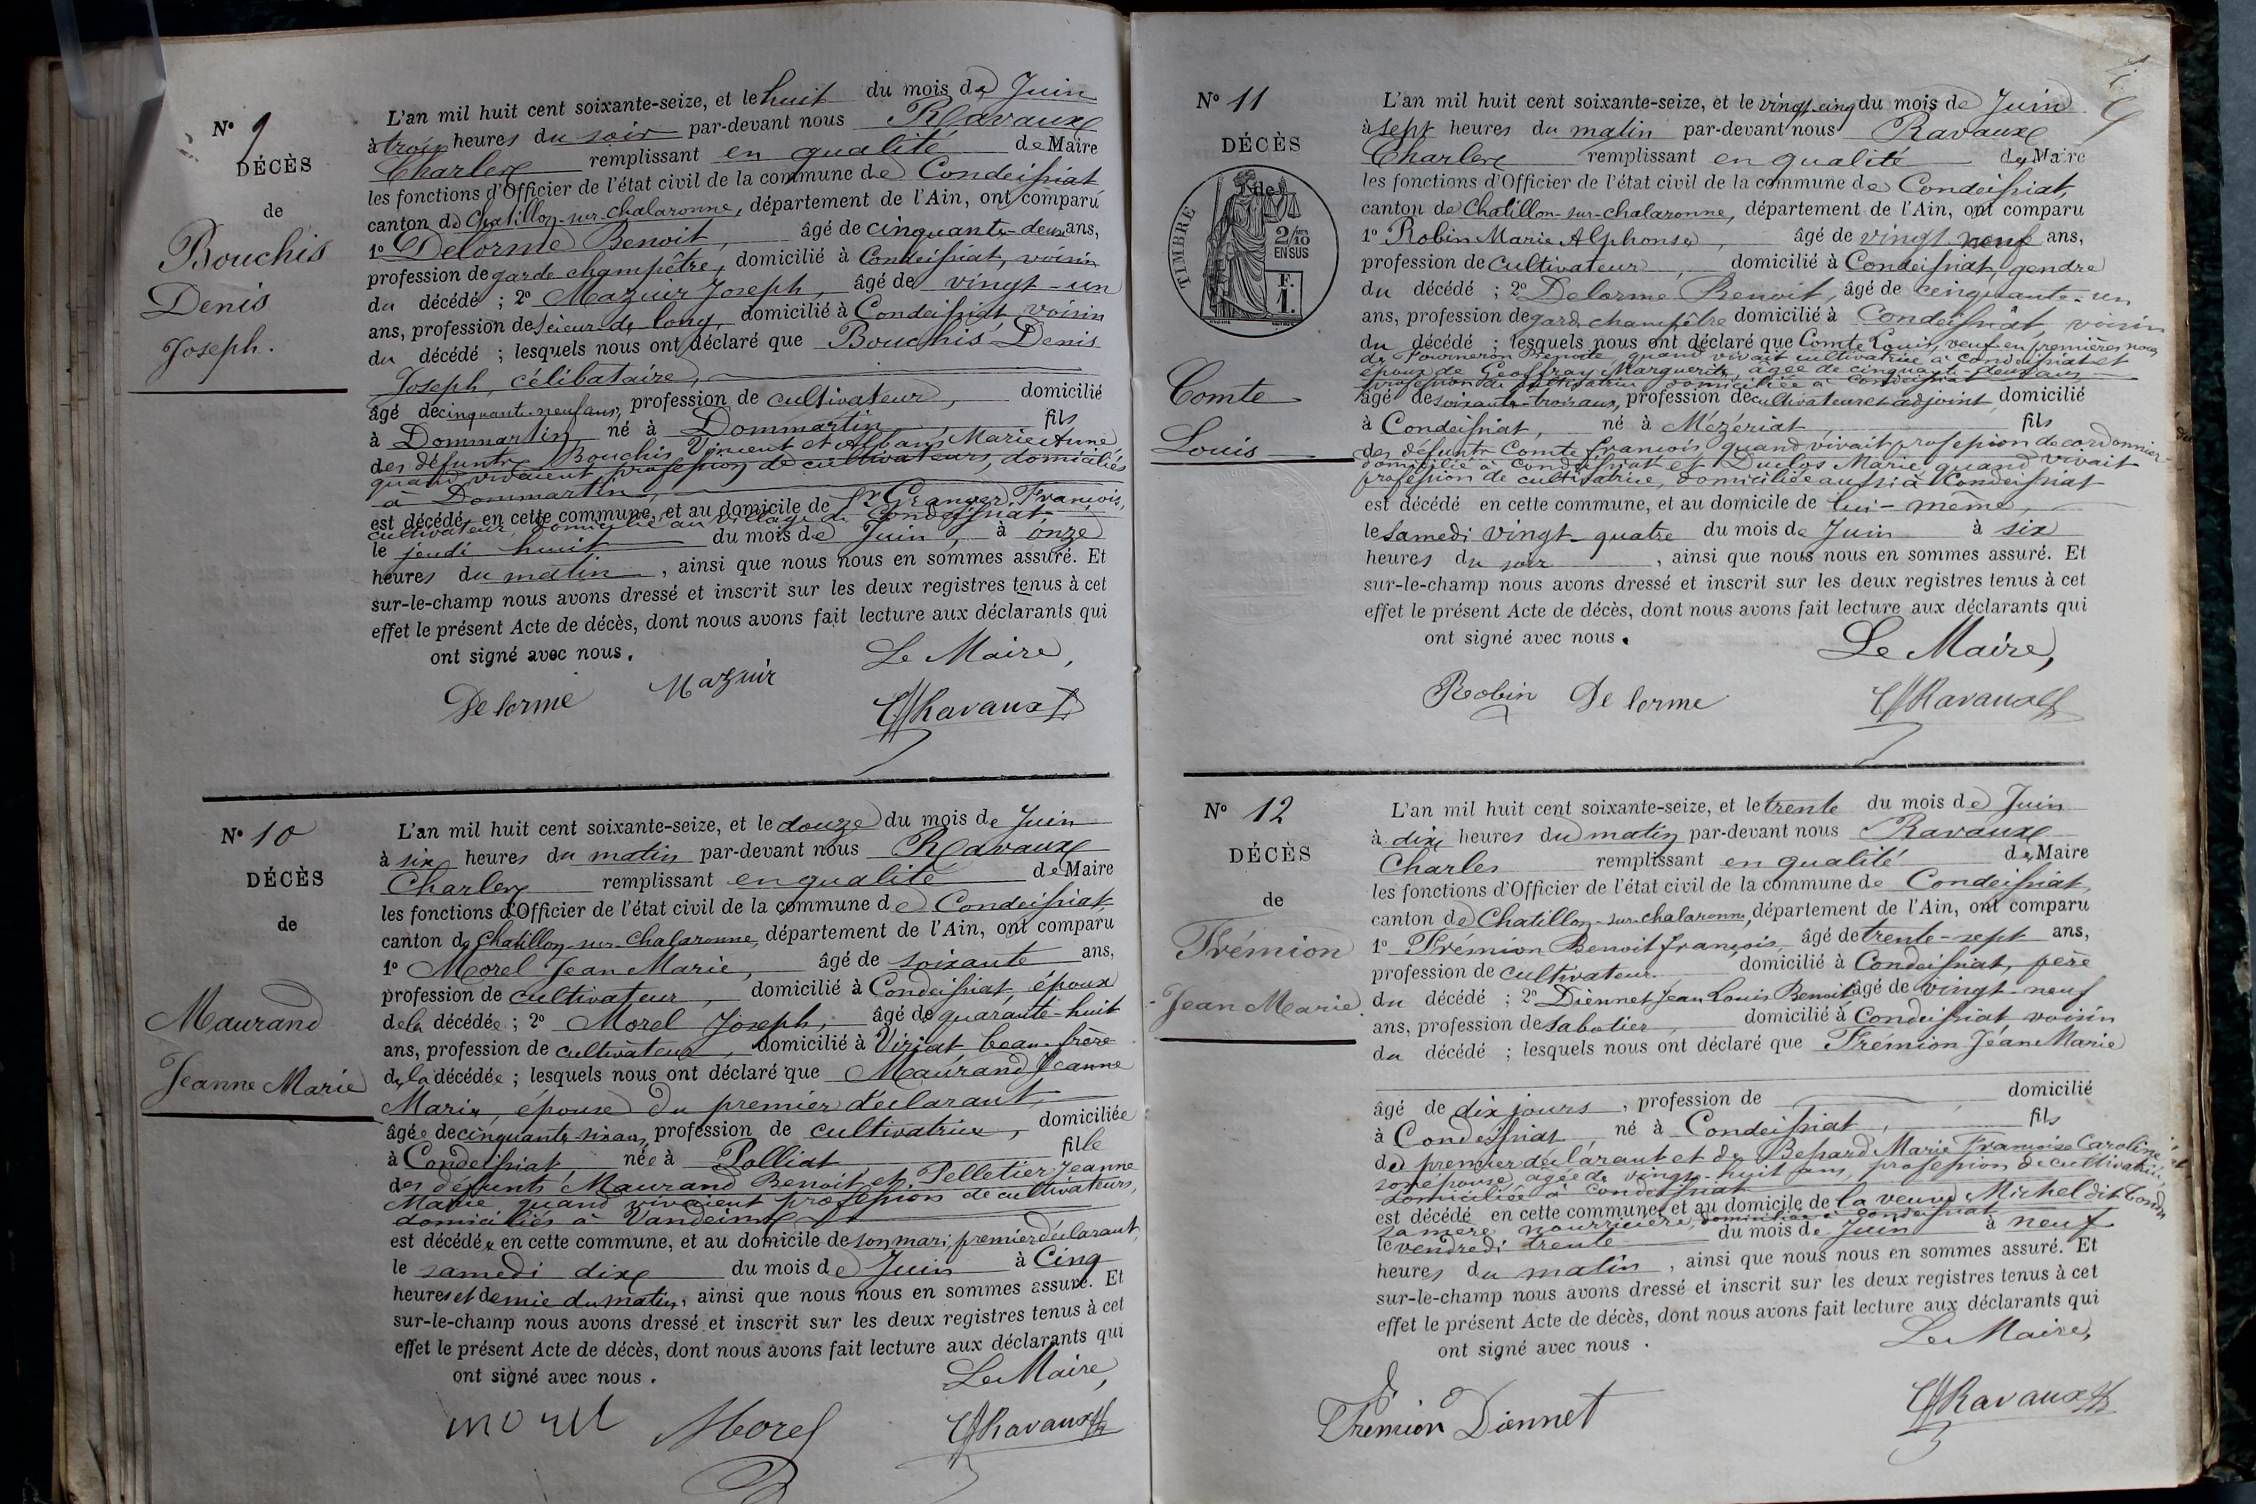 N° 9
DÉCÈS
de
Bouchis
Denis
Joseph.
L'an mil huit cent soixante-seize, et le huit du mois de Juin
à trois heures du soir par-devant nous Ravaux
Charles remplissant en qualité de Maire
les fonctions d'Officier de l'état civil de la commune de Condeissiat,
canton de Chatillon-sur-chalaronne, département de l'Ain, ont comparu
1° Delorme Benoit, âgé de cinquante-deux ans,
profession de garde champêtre, domicilié à Condeissiat, voisin
du décédé ; 2° Mazuir Joseph, âgé de vingt-un
ans, profession de scieur de long, domicilié à Condeissiat voisin
du décédé ; lesquels nous ont déclaré que Bouchis Denis
Joseph, célibataire,
âgé de cinquante-neuf ans, profession de cultivateur, domicilié
à Dommartin, né à Dommartin, fils
des défunts Bouchis Vincent et Alban Marie Anne
quand vivaient profession de cultivateurs, domiciliés
à Dommartin,
est décédé en cette commune, et au domicile de Sr Granger François,
cultivateur, domicilié au village de Condeissiat
le jeudi huit du mois de Juin, à onze
heures du matin, ainsi que nous nous en sommes assuré. Et
sur-le-champ nous avons dressé et inscrit sur les deux registres tenus à cet
effet le présent Acte de décès, dont nous avons fait lecture aux déclarants qui
ont signé avec nous.
Le Maire,
Delorme Mazuir Ravaux
N° 10
DÉCÈS
de
Maurand
Jeanne Marie
L'an mil huit cent soixante-seize, et le douze du mois de Juin
à six heures du matin par-devant nous Ravaux
Charles remplissant en qualité de Maire
les fonctions d'Officier de l'état civil de la commune de Condeissiat
canton de Chatillon-sur-Chalaronne, département de l'Ain, ont comparu
1° Morel Jean Marie, âgé de soixante ans,
profession de cultivateur, domicilié à Condeissiat, époux
de la décédée ; 2° Morel Joseph, âgé de quarante-huit
ans, profession de cultivateur, domicilié à Viriat beau-frère
de la décédée ; lesquels nous ont déclaré que Maurand Jeanne
Marie, épouse du premier déclarant,
âgée de cinquante-six ans, profession de cultivatrice, domiciliée
à Condeissiat, née à Polliat fille
des défunts Maurand Benoit et Pelletier Jeanne
Marie quand vivaient profession de cultivateurs,
domiciliés à Vandeins
est décédée en cette commune, et au domicile de son mari, premier déclarant,
le samedi dix du mois de Juin à Cinq
heures et demie du matin, ainsi que nous nous en sommes assuré. Et
sur-le-champ nous avons dressé et inscrit sur les deux registres tenus à cet
effet le présent Acte de décès, dont nous avons fait lecture aux déclarants qui
ont signé avec nous.
Le Maire,
morel Morel Ravaux
N° 11
DÉCÈS
de
TIMBRE
2/10 EN SUS
F. 1.
Comte
Louis
L'an mil huit cent soixante-seize, et le vingt-cinq du mois de Juin
à sept heures du matin par-devant nous Ravaux
Charles remplissant en qualité de Maire
les fonctions d'Officier de l'état civil de la commune de Condeissiat,
canton de Chatillon-sur-chalaronne, département de l'Ain, ont comparu
1° Robin Marie Alphonse, âgé de vingt neuf ans,
profession de cultivateur, domicilié à Condeissiat, gendre
du décédé ; 2° Delorme Benoit, âgé de cinquante-un
ans, profession de garde champêtre domicilié à Condeissiat voisin
du décédé ; lesquels nous ont déclaré que Comte Louis, veuf en premières noces
de Fourneron Benoite, quand vivait cultivatrice à Condeissiat et
époux de Geoffray Marguerite, agée de cinquante-deux ans
profession de cultivatrice domiciliée à Condeissiat
âgé de soixante-trois ans, profession de cultivateur et adjoint domicilié
à Condeissiat, né à Mézériat, fils
des défunts Comte François, quand vivait profession de cordonnier
domicilié à Condeissiat et Duclos Marie quand vivait
profession de cultivatrice, domiciliée aussi à Condeissiat
est décédé en cette commune, et au domicile de lui-même,
le samedi vingt-quatre du mois de Juin à six
heures du soir, ainsi que nous nous en sommes assuré. Et
sur-le-champ nous avons dressé et inscrit sur les deux registres tenus à cet
effet le présent Acte de décès, dont nous avons fait lecture aux déclarants qui
ont signé avec nous.
Le Maire,
Robin Delorme Ravaux
N° 12
DÉCÈS
de
Frémion
Jean Marie.
L'an mil huit cent soixante-seize, et le trente du mois de Juin
à dix heures du matin par-devant nous Ravaux
Charles remplissant en qualité de Maire
les fonctions d'Officier de l'état civil de la commune de Condeissiat,
canton de Chatillon-sur-chalaronne, département de l'Ain, ont comparu
1° Frémion Benoit François âgé de trente-sept ans,
profession de cultivateur domicilié à Condeissiat, père
du décédé ; 2° Diennet Jean Louis Benoit âgé de vingt-neuf
ans, profession de sabotier, domicilié à Condeissiat voisin
du décédé ; lesquels nous ont déclaré que Frémion Jean Marie
âgé de dix jours, profession de domicilié
à Condeissiat, né à Condeissiat, fils
de premier déclarant et de Marie Françoise Caroline
son épouse, agée de vingt-huit ans, profession de cultivatrice,
domiciliée à Condeissiat
est décédé en cette commune, et au domicile de la veuve Michel dit
sa mère nourricière, domiciliée à Condeissiat
le vendredi trente du mois de Juin à neuf
heures du matin, ainsi que nous nous en sommes assuré. Et
sur-le-champ nous avons dressé et inscrit sur les deux registres tenus à cet
effet le présent Acte de décès, dont nous avons fait lecture aux déclarants qui
ont signé avec nous.
Le Maire,
Frémion Diennet Ravaux